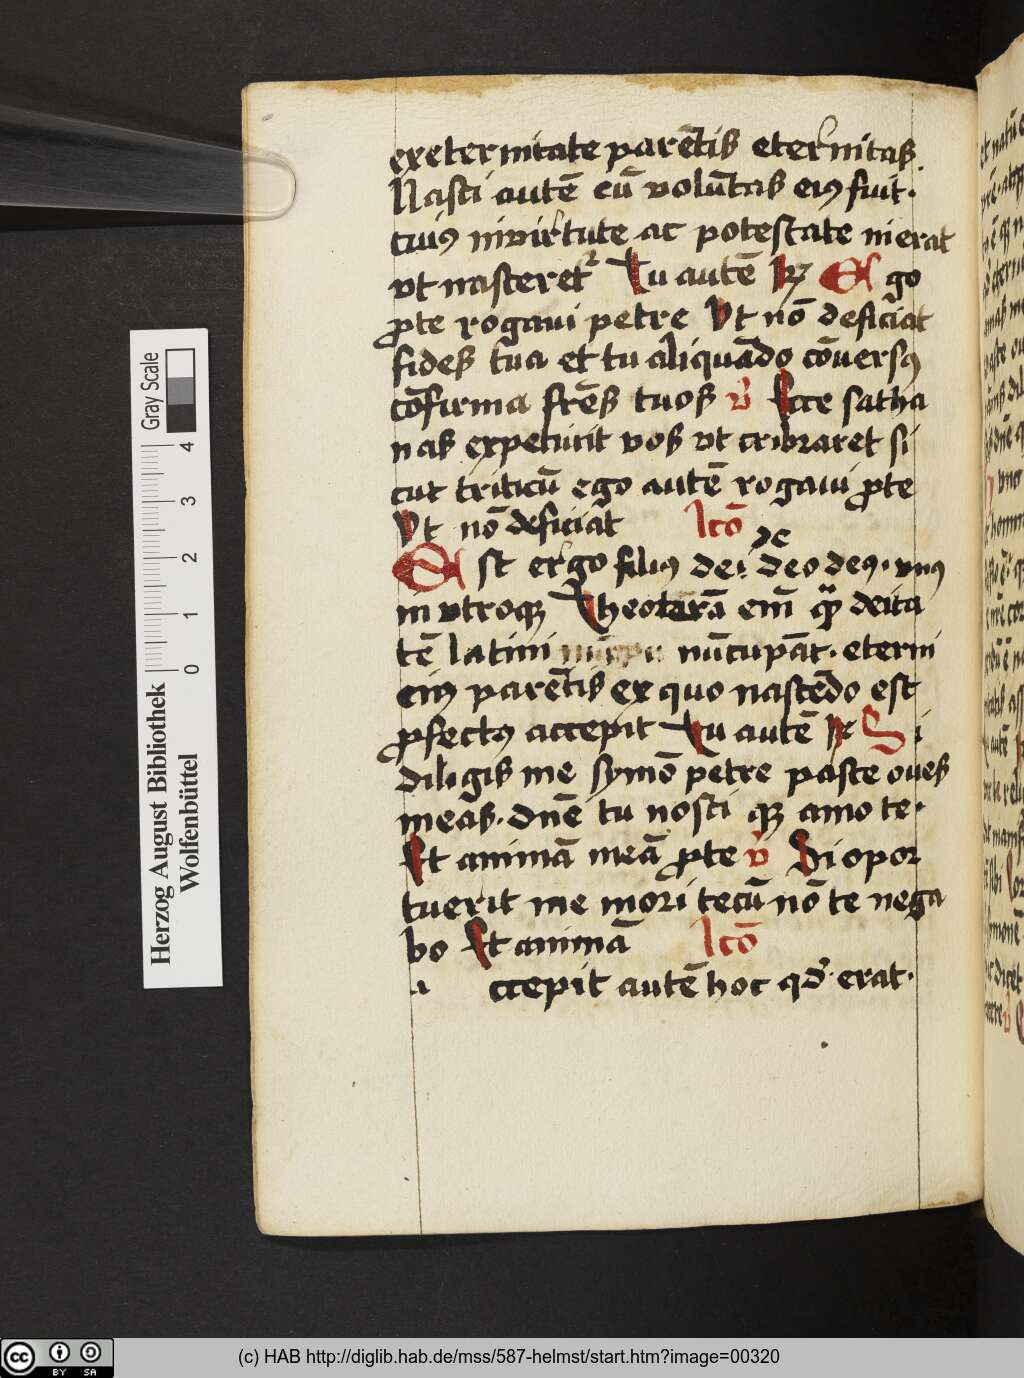 ex eternitate parētis eternitas.
Nasci autē cū volūtas eiꝰ fuit.
cuiꝰ in virtute ac potestate in erat
vt nasceret᷑ Tu autē R̷ Ego
ꝓ te rogaui petre Vt nō deficiat
fides tua et tu aliquādo cōuersꝰ
cōfirma frēs tuos v̄ Ecce satha
nas expetiuit vos vt cribraret si
cut triticū ego autē rogaui ꝓ te
Vt nō deficiat lcō
de
Est ergo filiꝰ dei dēo deꝰ. vnꝰ
in vtroqꝫ Theotetrā eīm quā deita
tē latini nūcupāt. eterni
eiꝰ parētis ex quo nascēdo est
ꝓfectꝰ accepit Tu autē R̷ Si
diligis me symō petre pasce oues
meas. dnē tu nosti qꝫ amo te.
Et animā meā ꝓ te v̄ Si opor
tuerit me mori tecū nō te nega
bo Et animā lcō
a ccepit autē hoc qd̄ erat.
Herzog August Bibliothek
Wolfenbüttel
0 1 2 3 4
Gray Scale
(c) HAB http://diglib.hab.de/mss/587-helmst/start.htm?image=00320
cc BY SA